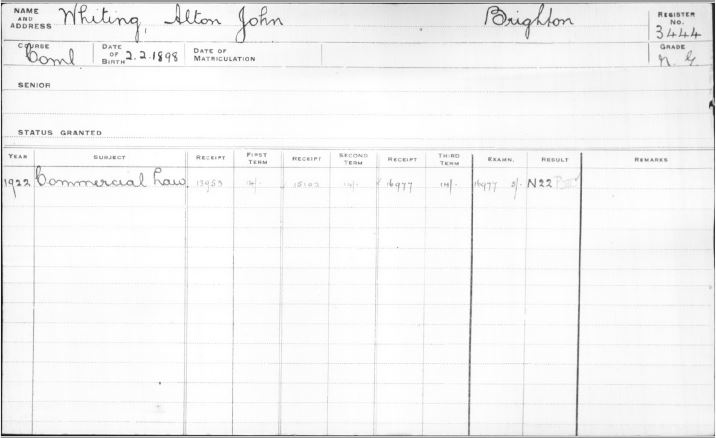 NAME AND ADDRESS Whiting, Alton John Brighton REGISTER No. 3444
COURSE Coml DATE OF BIRTH 2.2.1898 DATE OF MATRICULATION GRADE N. G.
SENIOR
STATUS GRANTED
YEAR SUBJECT RECEIPT FIRST TERM RECEIPT SECOND TERM RECEIPT THIRD TERM EXAMN. RESULT REMARKS
1922 Commercial Law. 14/- 14/- 16977 14/- 16977 5/- N22